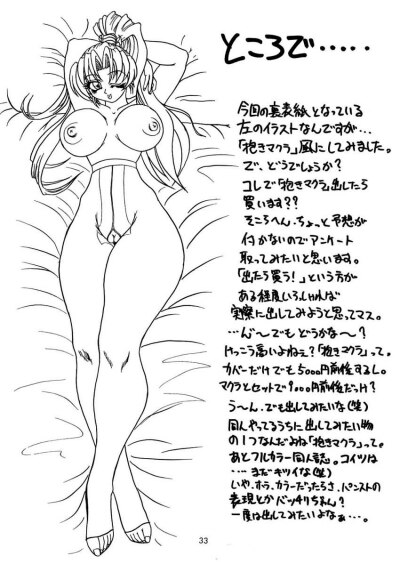 ところで・・・・・
今回の裏表紙となっている
左のイラストなんですが・・・
「抱きマクラ」風にしてみました。
で、どうでしょうか？
コレで「抱きマクラ」出したら
買います？？
そこらへん、ちょっと予想が
付かないのでアンケート
取ってみたいと思います。
「出たら買う！」という方が
ある程度いらしゃれば
実際に出してみようと思ってマス。
・・・ん〜でもどうかな〜？
けっこう高いよねぇ？「抱きマクラ」って。
カバーだけでも5000円前後するし。
マクラとセットで9000円前後だっけ？
う〜ん、でも出してみたいな（笑）
同人やってるうちに出してみたい物
の1つなんだよね「抱きマクラ」って。
あとフルカラー同人誌。コイツは
・・・まだキツイな（笑）
いや、ホラ、カラーだったらさ、パンストの
表現とかバッチリじゃん？
一度は出してみたいよなぁ・・・。
33